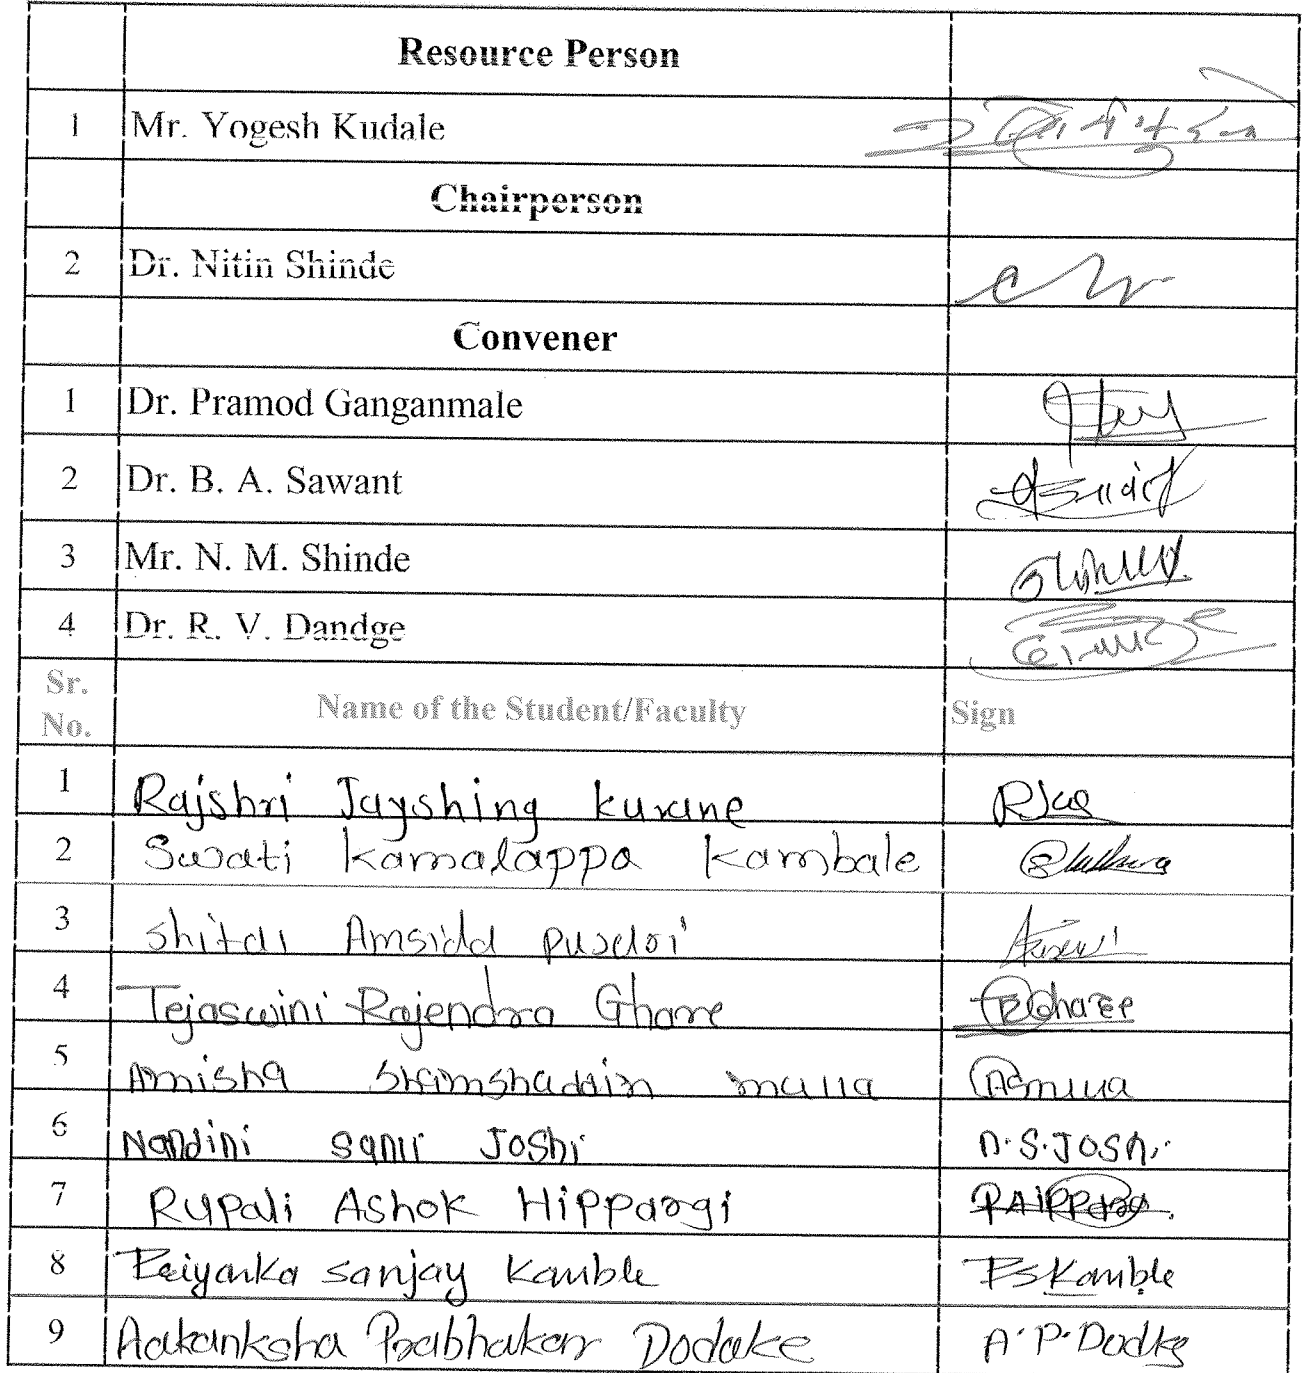 Resource Person
1 Mr. Yogesh Kudale
Chairperson
2 Dr. Nitin Shinde
Convener
1 Dr. Pramod Ganganmale
2 Dr. B. A. Sawant
3 Mr. N. M. Shinde
4 Dr. R. V. Dandge
Sr. No. Name of the Student/Faculty Sign
1 Rajshri Jayshing Kurane
2 Swati Kamalappa Kambale
3 Shital Amsidd pujari
4 Tejaswini Rajendra Ghare
5 Amisha Shamshaddin mulla
6 Nandini Sunil Joshi n.S.Joshi
7 Rupali Ashok Hippargi
8 Priyanka Sanjay Kamble PSKamble
9 Aakanksha Prabhakar Dodake A.P.Dodke